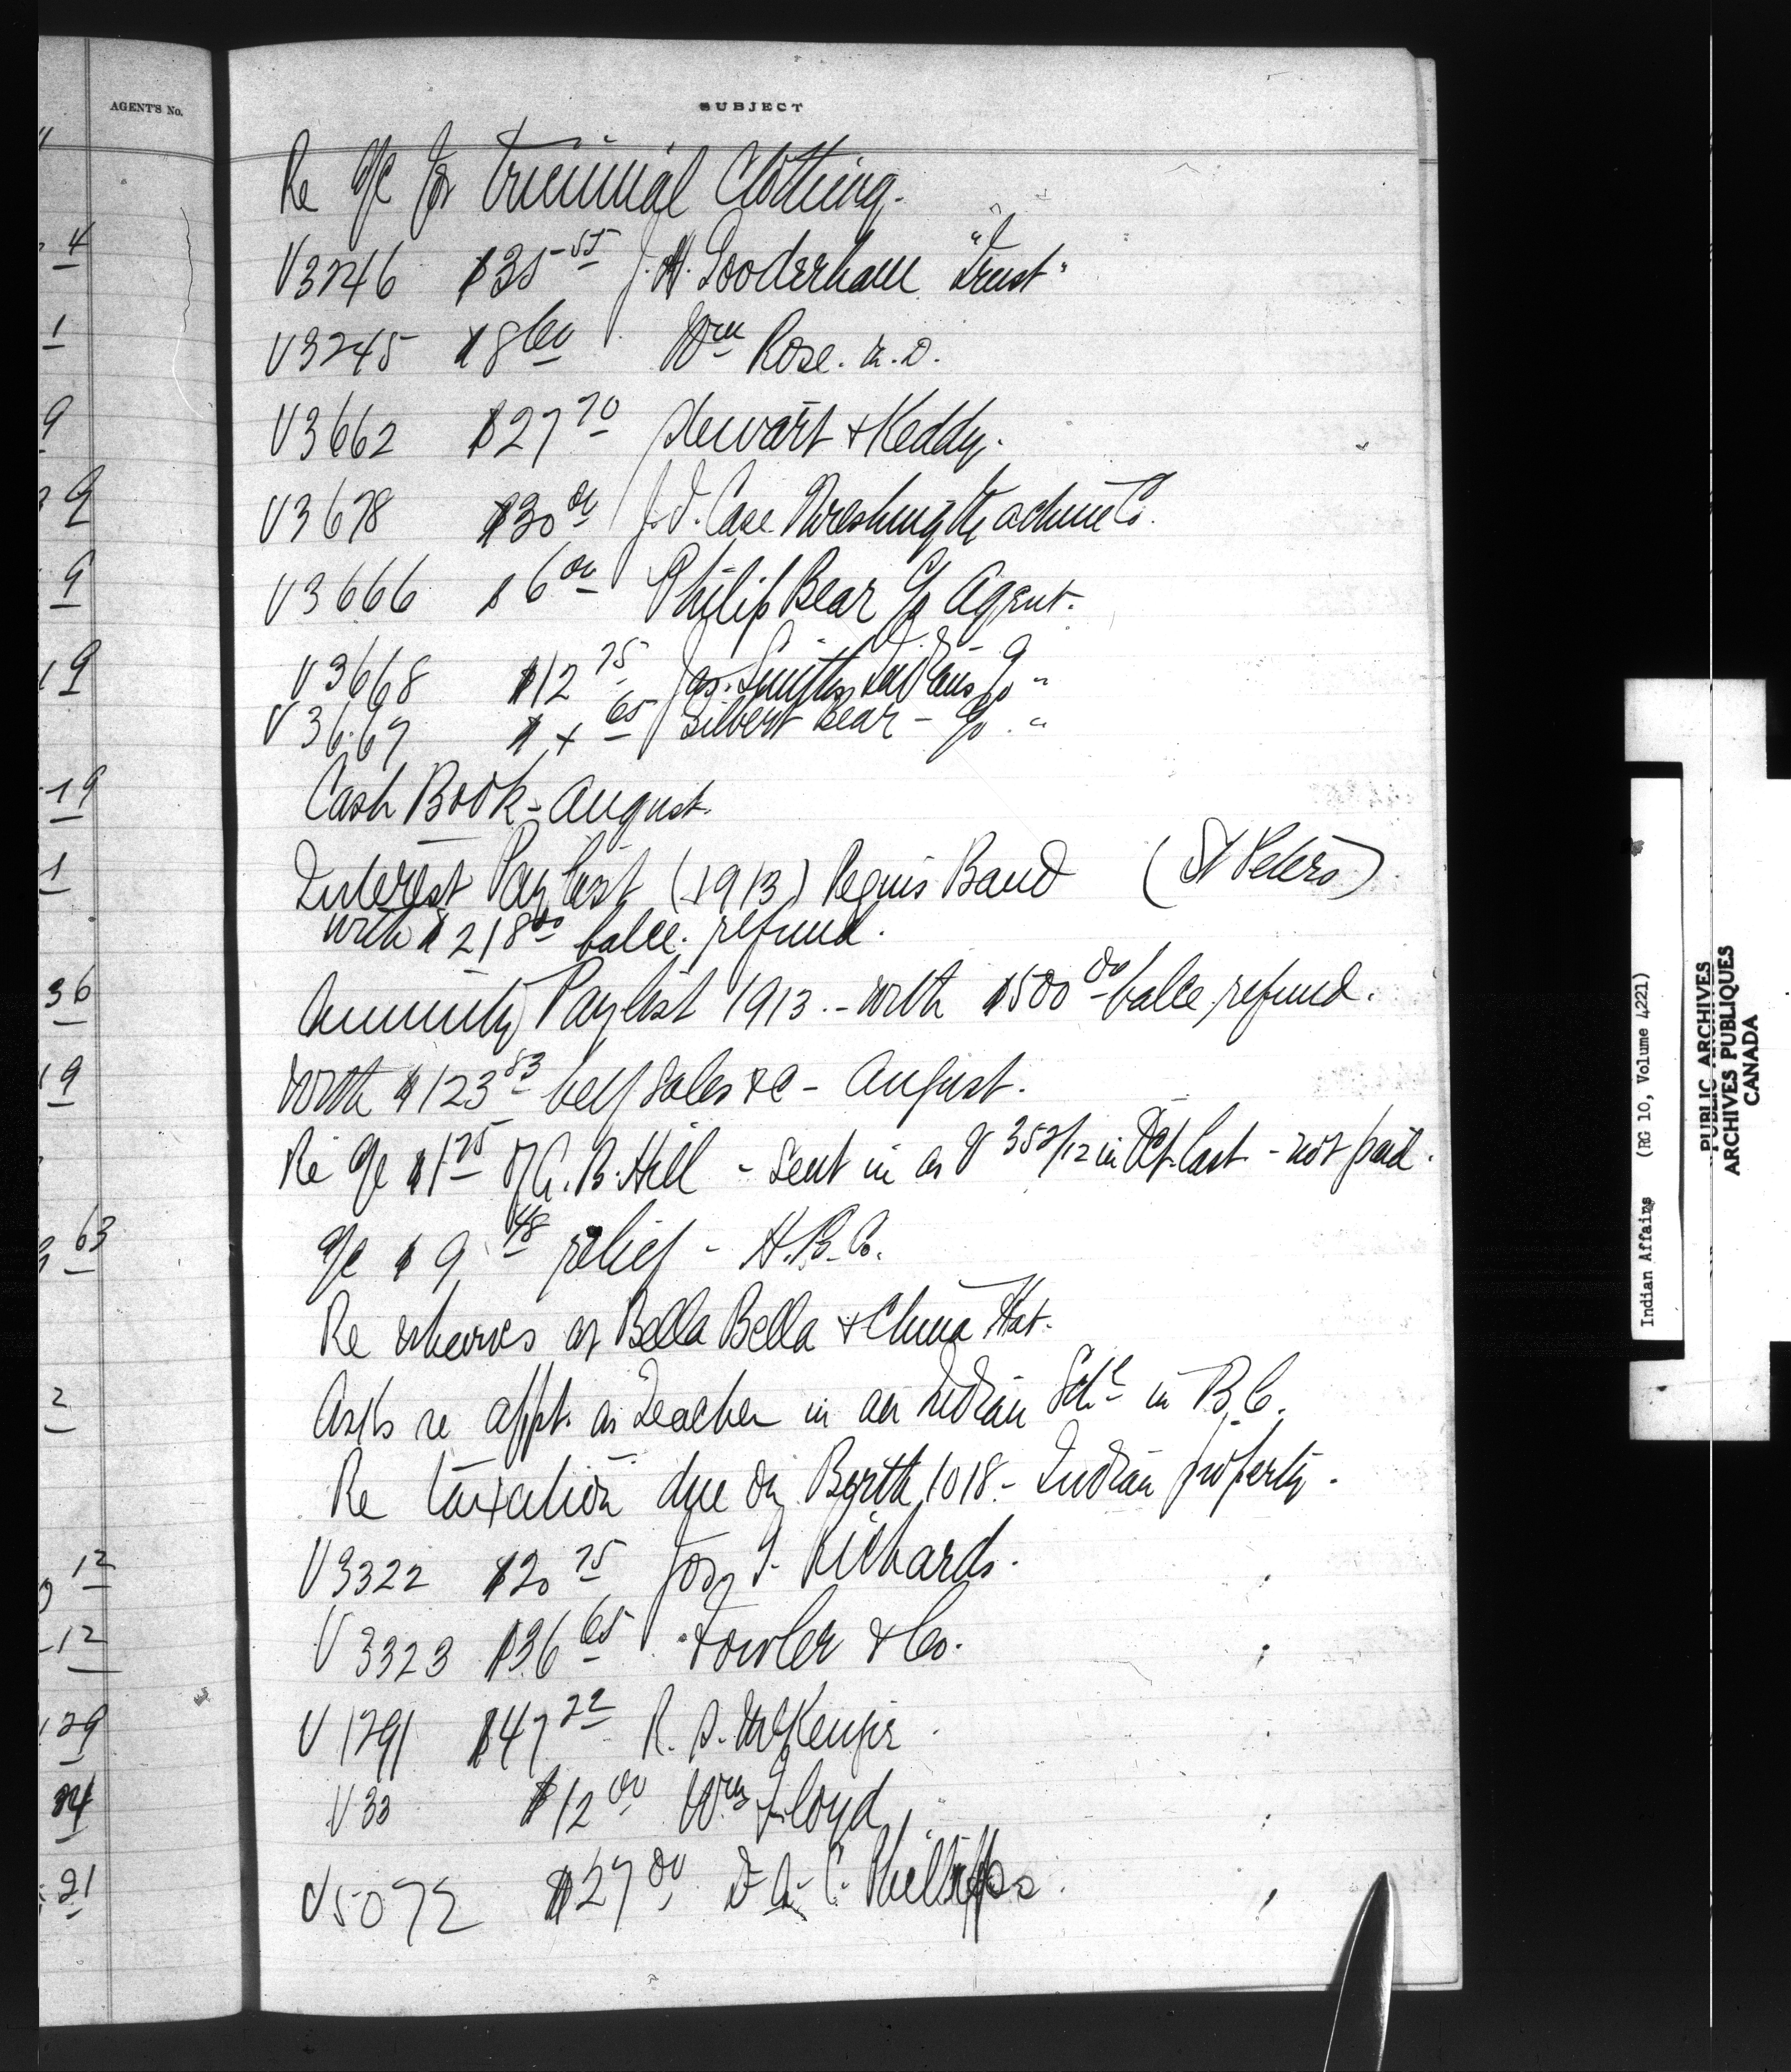 AGENT'S No.
SUBJECT
Re a/c for triennial Clothing.
4
V3246 $35 55 J.H. Gooderham "Trust"
1
V3245 $8 60 Wm Rose. M.D.
9
V3662 $27 70 Stewart & Keddy.
9
V3678 $30 00 J.I. Case Threshing Machine Co.
9
V3666 $6 00 Philip Bear c/o Agent.
19
V3668 $12 75 Jas. Smith's Indians c/o "
V3667 $ 65 Gilbert Bear - c/o "
19
Cash Book - August.
1
Interest Paylist (1913) Peguis Band (St Peters)
with $218 00 balce. refund.
36
Annuity Paylist 1913. - with $500 00 balce refund.
19
With $123 83 beef sales &c - August.
Re a/c $1 75 of G. B. Hill - Sent in as V 352/12 in Oct. last - not paid.
63
a/c $9 48 relief - H.B.Co.
Re wharves at Bella Bella & China Hat.
2
Asks re appt. as Teacher in an Indian Schl in B.C.
Re taxation due on Berth 1018 - Indian property.
12
V3322 $20 75 Jos. Richards.
12
V3323 $36 65 Fowler & Co.
29
V1791 $47 22 R. S. McKenzie
24
V33 $12 00 Wm Floyd
21
V5072 $27 00 C. Phillipps.
Indian Affairs (RG 10, Volume 4221)
PUBLIC ARCHIVES
ARCHIVES PUBLIQUES
CANADA